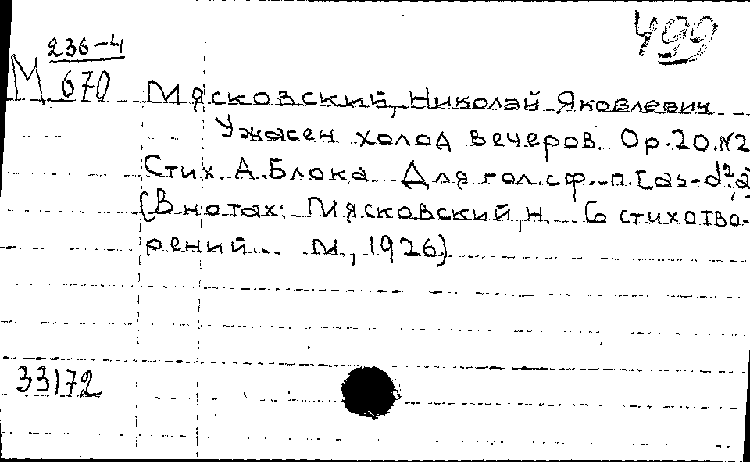 499
М 236-4
670
Мясковский, Николай Яковлевич
Ужасен холод вечеров. Op.20.№2
Стих. А.Блока. Для гол. с ф.-п. [as-d²,a]
(В нотах: Мясковский, Н. 6 стихотво-
рений... М., 1926)
33172